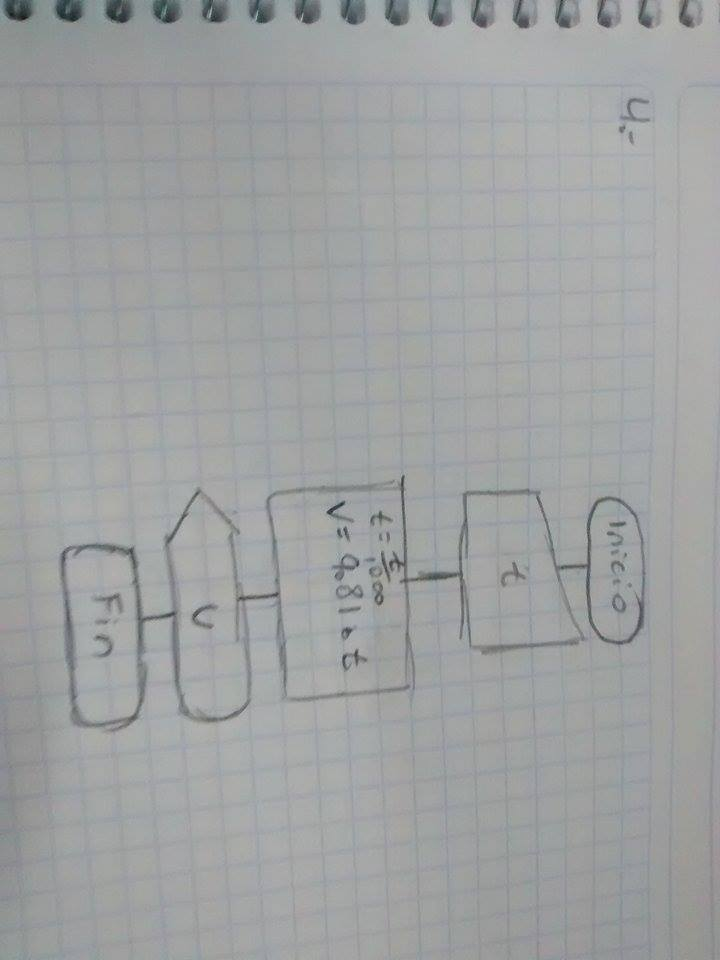 4.-
Inicio
t
t = t/1000
V = 9.81 * t
V
Fin